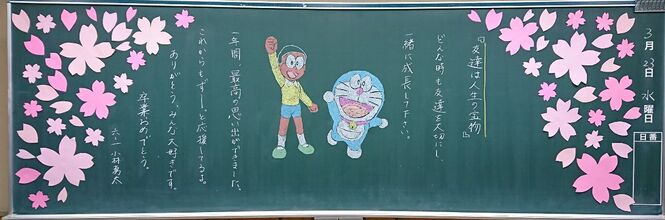 3月23日水曜日
日番
『友達は人生の宝物』
どんな時も友達を大切にし、
一緒に成長して下さい。
一年間、最高の思い出ができました。
これからもずーっと応援してるよ。
ありがとう。みんな大好きです。
卒業おめでとう。
六の一 小林勇太